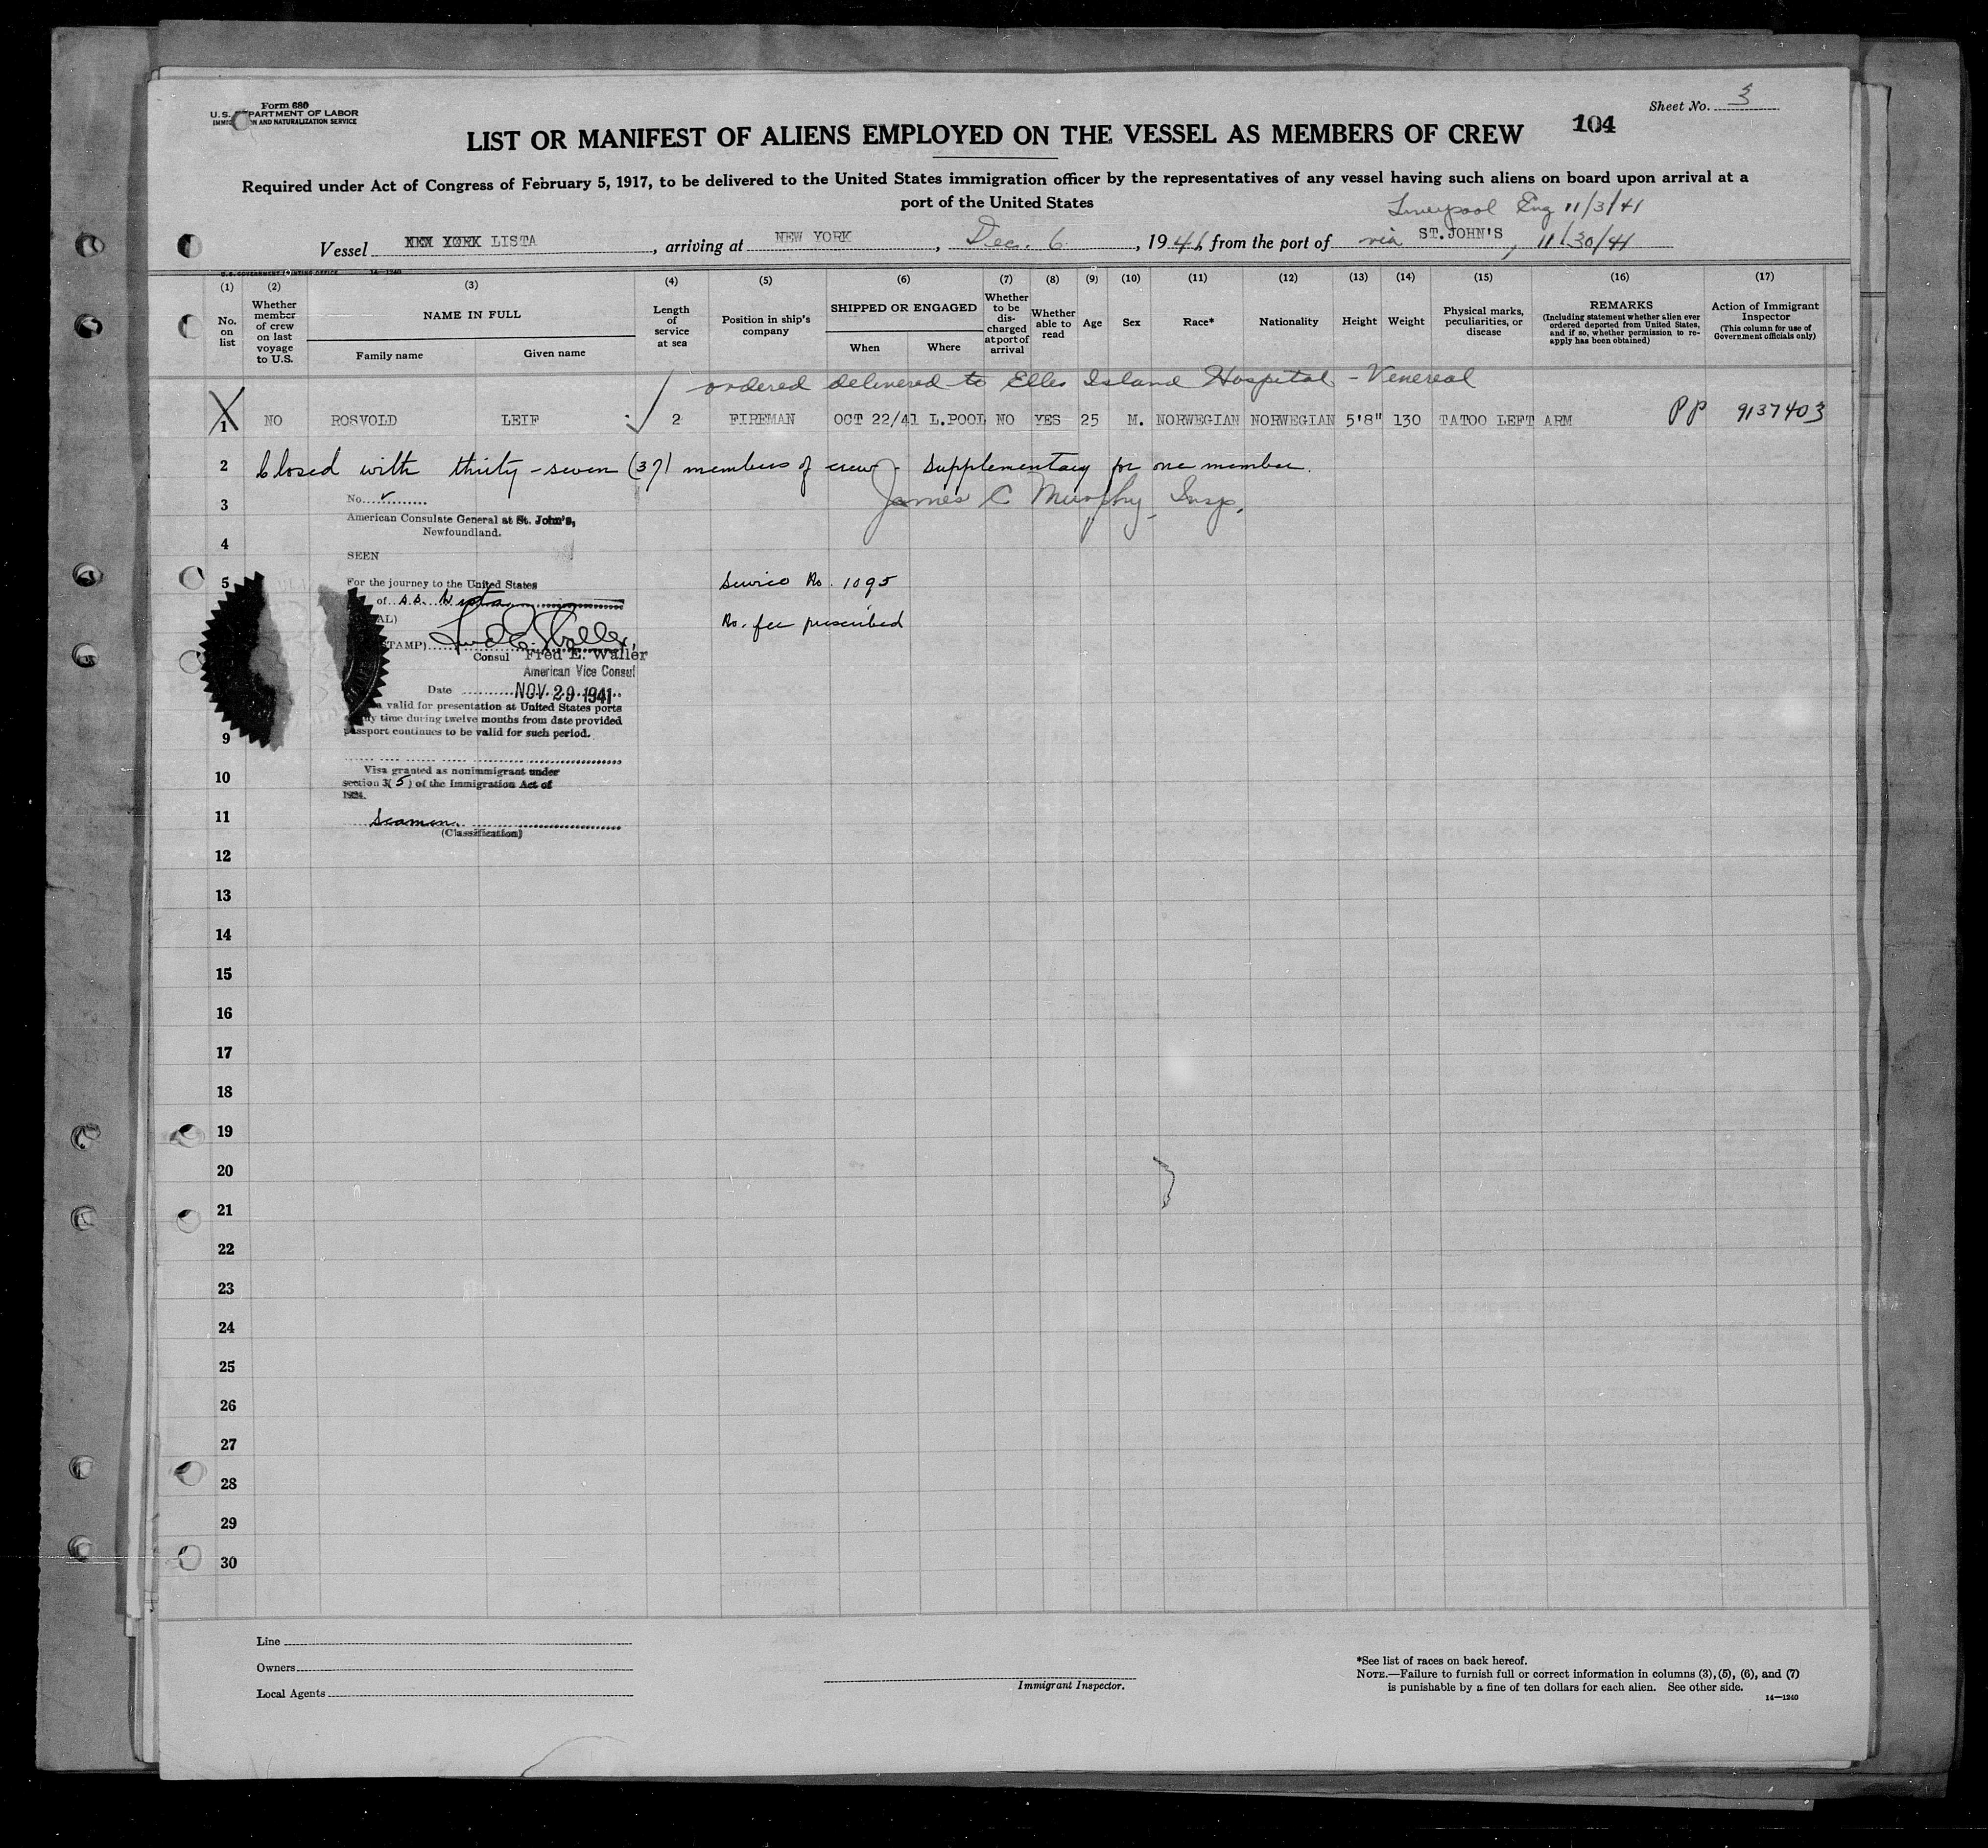 Form 680
U.S. DEPARTMENT OF LABOR
IMMIGRATION AND NATURALIZATION SERVICE
Sheet No. 3
LIST OR MANIFEST OF ALIENS EMPLOYED ON THE VESSEL AS MEMBERS OF CREW 104
Required under Act of Congress of February 5, 1917, to be delivered to the United States immigration officer by the representatives of any vessel having such aliens on board upon arrival at a
port of the United States
Liverpool Eng 11/3/41
Vessel LISTA, arriving at NEW YORK, Dec. 6, 1941 from the port of via ST.JOHN'S, 11/30/41
U.S. GOVERNMENT PRINTING OFFICE 14—1240
(1) No. on list
(2) Whether member of crew on last voyage to U.S.
(3) NAME IN FULL
Family name Given name
(4) Length of service at sea
(5) Position in ship's company
(6) SHIPPED OR ENGAGED
When Where
(7) Whether to be discharged at port of arrival
(8) Whether able to read
(9) Age
(10) Sex
(11) Race*
(12) Nationality
(13) Height
(14) Weight
(15) Physical marks, peculiarities, or disease
(16) REMARKS
(Including statement whether alien ever ordered deported from United States, and if so, whether permission to re-apply has been obtained)
(17) Action of Immigrant Inspector
(This column for use of Government officials only)
ordered delivered to Elles Island Hospital - Venereal
1 NO ROSVOLD LEIF 2 FIREMAN OCT 22/41 L.POOL NO YES 25 M. NORWEGIAN NORWEGIAN 5'8" 130 TATOO LEFT ARM PP 9137403
2 Closed with thirty-seven (37) members of crew - Supplementary for one member.
3 James C Murphy Insp.
No.
American Consulate General at St. John's,
Newfoundland.
4
SEEN
5 For the journey to the United States
Service No. 1095
of s.s. Lista
No. fee prescribed
Consul Fred E. Waller
American Vice Consul
Date NOV 29 1941
valid for presentation at United States ports
time during twelve months from date provided
9 passport continues to be valid for such period.
10 Visa granted as nonimmigrant under
section 3(5) of the Immigration Act of
1924.
11 Seamen
(Classification)
12
13
14
15
16
17
18
19
20
21
22
23
24
25
26
27
28
29
30
Line
Owners
Local Agents
Immigrant Inspector.
*See list of races on back hereof.
NOTE.—Failure to furnish full or correct information in columns (3), (5), (6), and (7)
is punishable by a fine of ten dollars for each alien. See other side.
14—1240